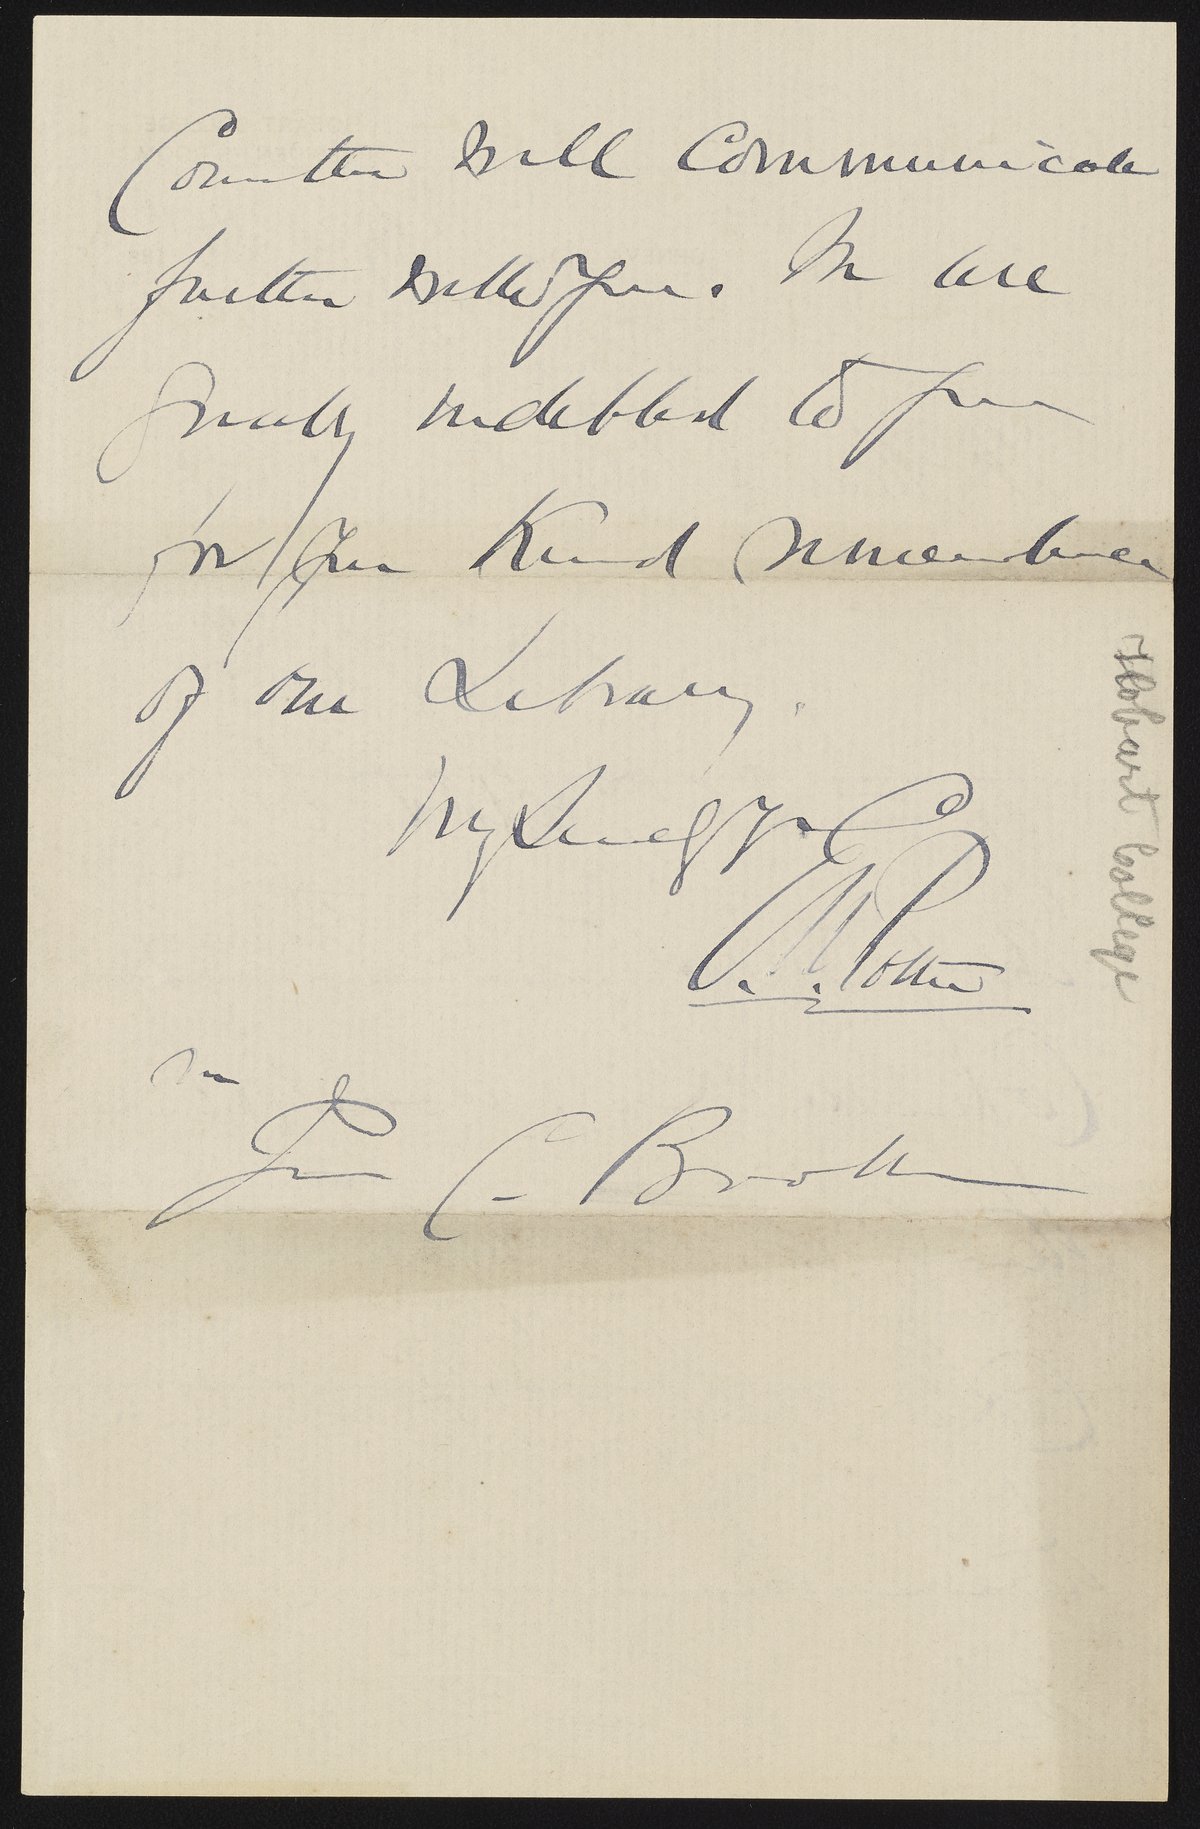 Committee will communicate
further with you. We are
greatly indebted to you
for your kind remembrance
of our Library.
Very Sincerely yrs
E. N. Potter
Jno C. Brooks
Hobart College